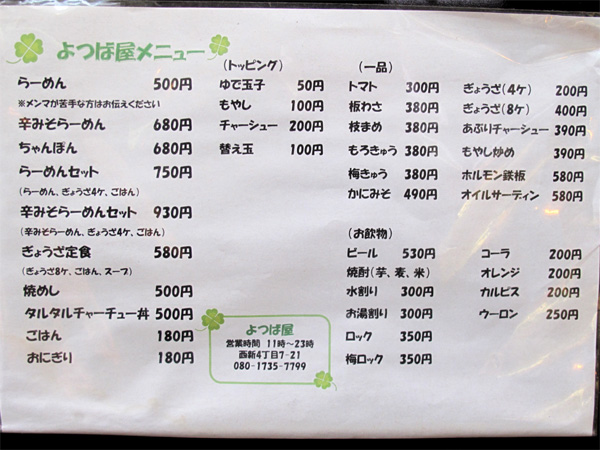 よつば屋メニュー
らーめん 500円
※メンマが苦手な方はお伝えください
辛みそらーめん 680円
ちゃんぽん 680円
らーめんセット 750円
(らーめん、ぎょうざ4ケ、ごはん)
辛みそらーめんセット 930円
(辛みそらーめん、ぎょうざ4ケ、ごはん)
ぎょうざ定食 580円
(ぎょうざ8ケ、ごはん、スープ)
焼めし 500円
タルタルチャーチュー丼 500円
ごはん 180円
おにぎり 180円
(トッピング)
ゆで玉子 50円
もやし 100円
チャーシュー 200円
替え玉 100円
(一品)
トマト 300円
板わさ 380円
枝まめ 380円
もろきゅう 380円
梅きゅう 380円
かにみそ 490円
ぎょうざ(4ケ) 200円
ぎょうざ(8ケ) 400円
あぶりチャーシュー 390円
もやし炒め 390円
ホルモン鉄板 580円
オイルサーディン 580円
(お飲物)
ビール 530円
焼酎(芋、麦、米)
水割り 300円
お湯割り 300円
ロック 350円
梅ロック 350円
コーラ 200円
オレンジ 200円
カルピス 200円
ウーロン 250円
よつば屋
営業時間 11時～23時
西新4丁目7-21
080-1735-7799